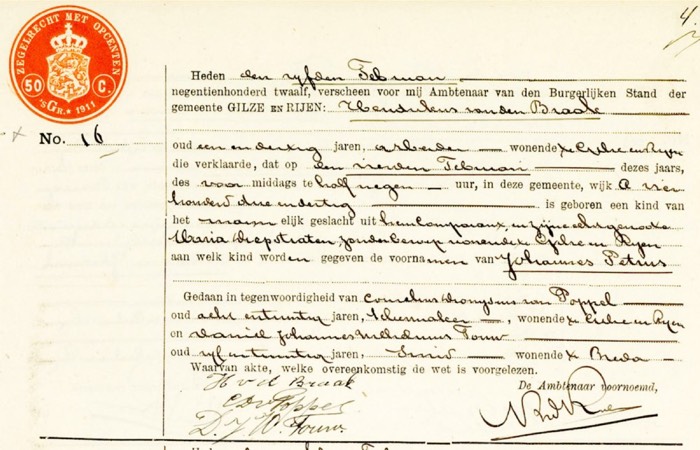 ZEGELRECHT MET OPCENTEN
50 C.
'sGr. 1911
4
No. 16
Heden den vyfden Februari
negentienhonderd twaalf, verscheen voor mij Ambtenaar van den Burgerlijken Stand der
gemeente GILZE EN RIJEN: Hendrikus van den Braak
oud een en dertig jaren, arbeider wonende te Gilze en Ryen
die verklaarde, dat op den vierden Februari dezes jaars,
des voor middags te half negen uur, in deze gemeente, wijk A vier
honderd drie en dertig is geboren een kind van
het mannelijk geslacht uit hem Comparant en zijne echtgenoote
Maria Diepstraten zonder beroep wonende te Gilze en Ryen
aan welk kind worden gegeven de voornamen van Johannes Petrus
Gedaan in tegenwoordigheid van Cornelius Dionysius van Poppel
oud acht en twintig jaren, schoenmaker, wonende te Gilze en Ryen
en Daniel Johannes Wilhelmus Touw
oud vyf en twintig jaren, Smid wonende te Breda
Waarvan akte, welke overeenkomstig de wet is voorgelezen.
H v d Braak
De Ambtenaar voornoemd,
CDv Poppel
D. J. W. Touw.